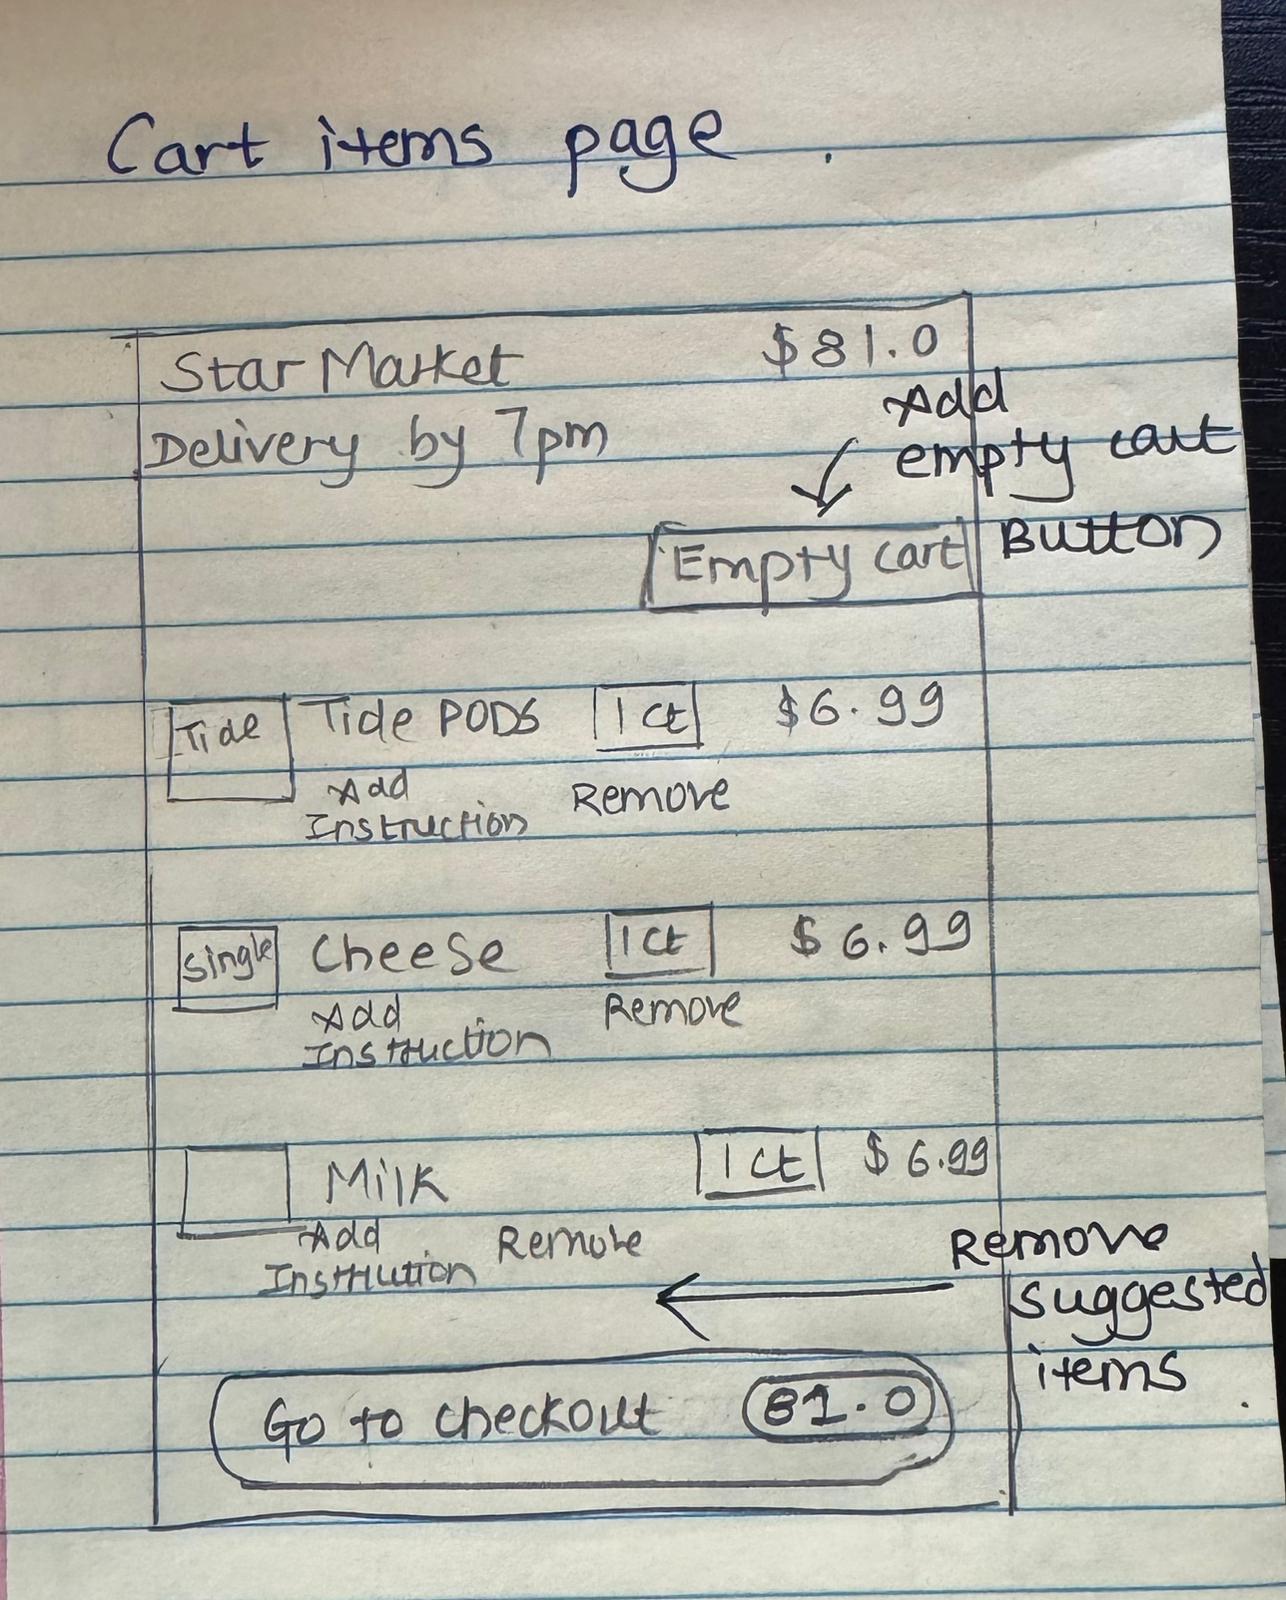 Cart items page
Star Market $81.0
Delivery by 7pm
Add
empty cart
Button
Empty cart
Tide Tide PODS 1 ct $6.99
Add
Instruction Remove
Single Cheese 1 ct $6.99
Add
Instruction Remove
Milk 1 ct $6.99
Add
Instruction Remove
Remove
suggested
items
Go to checkout 81.0